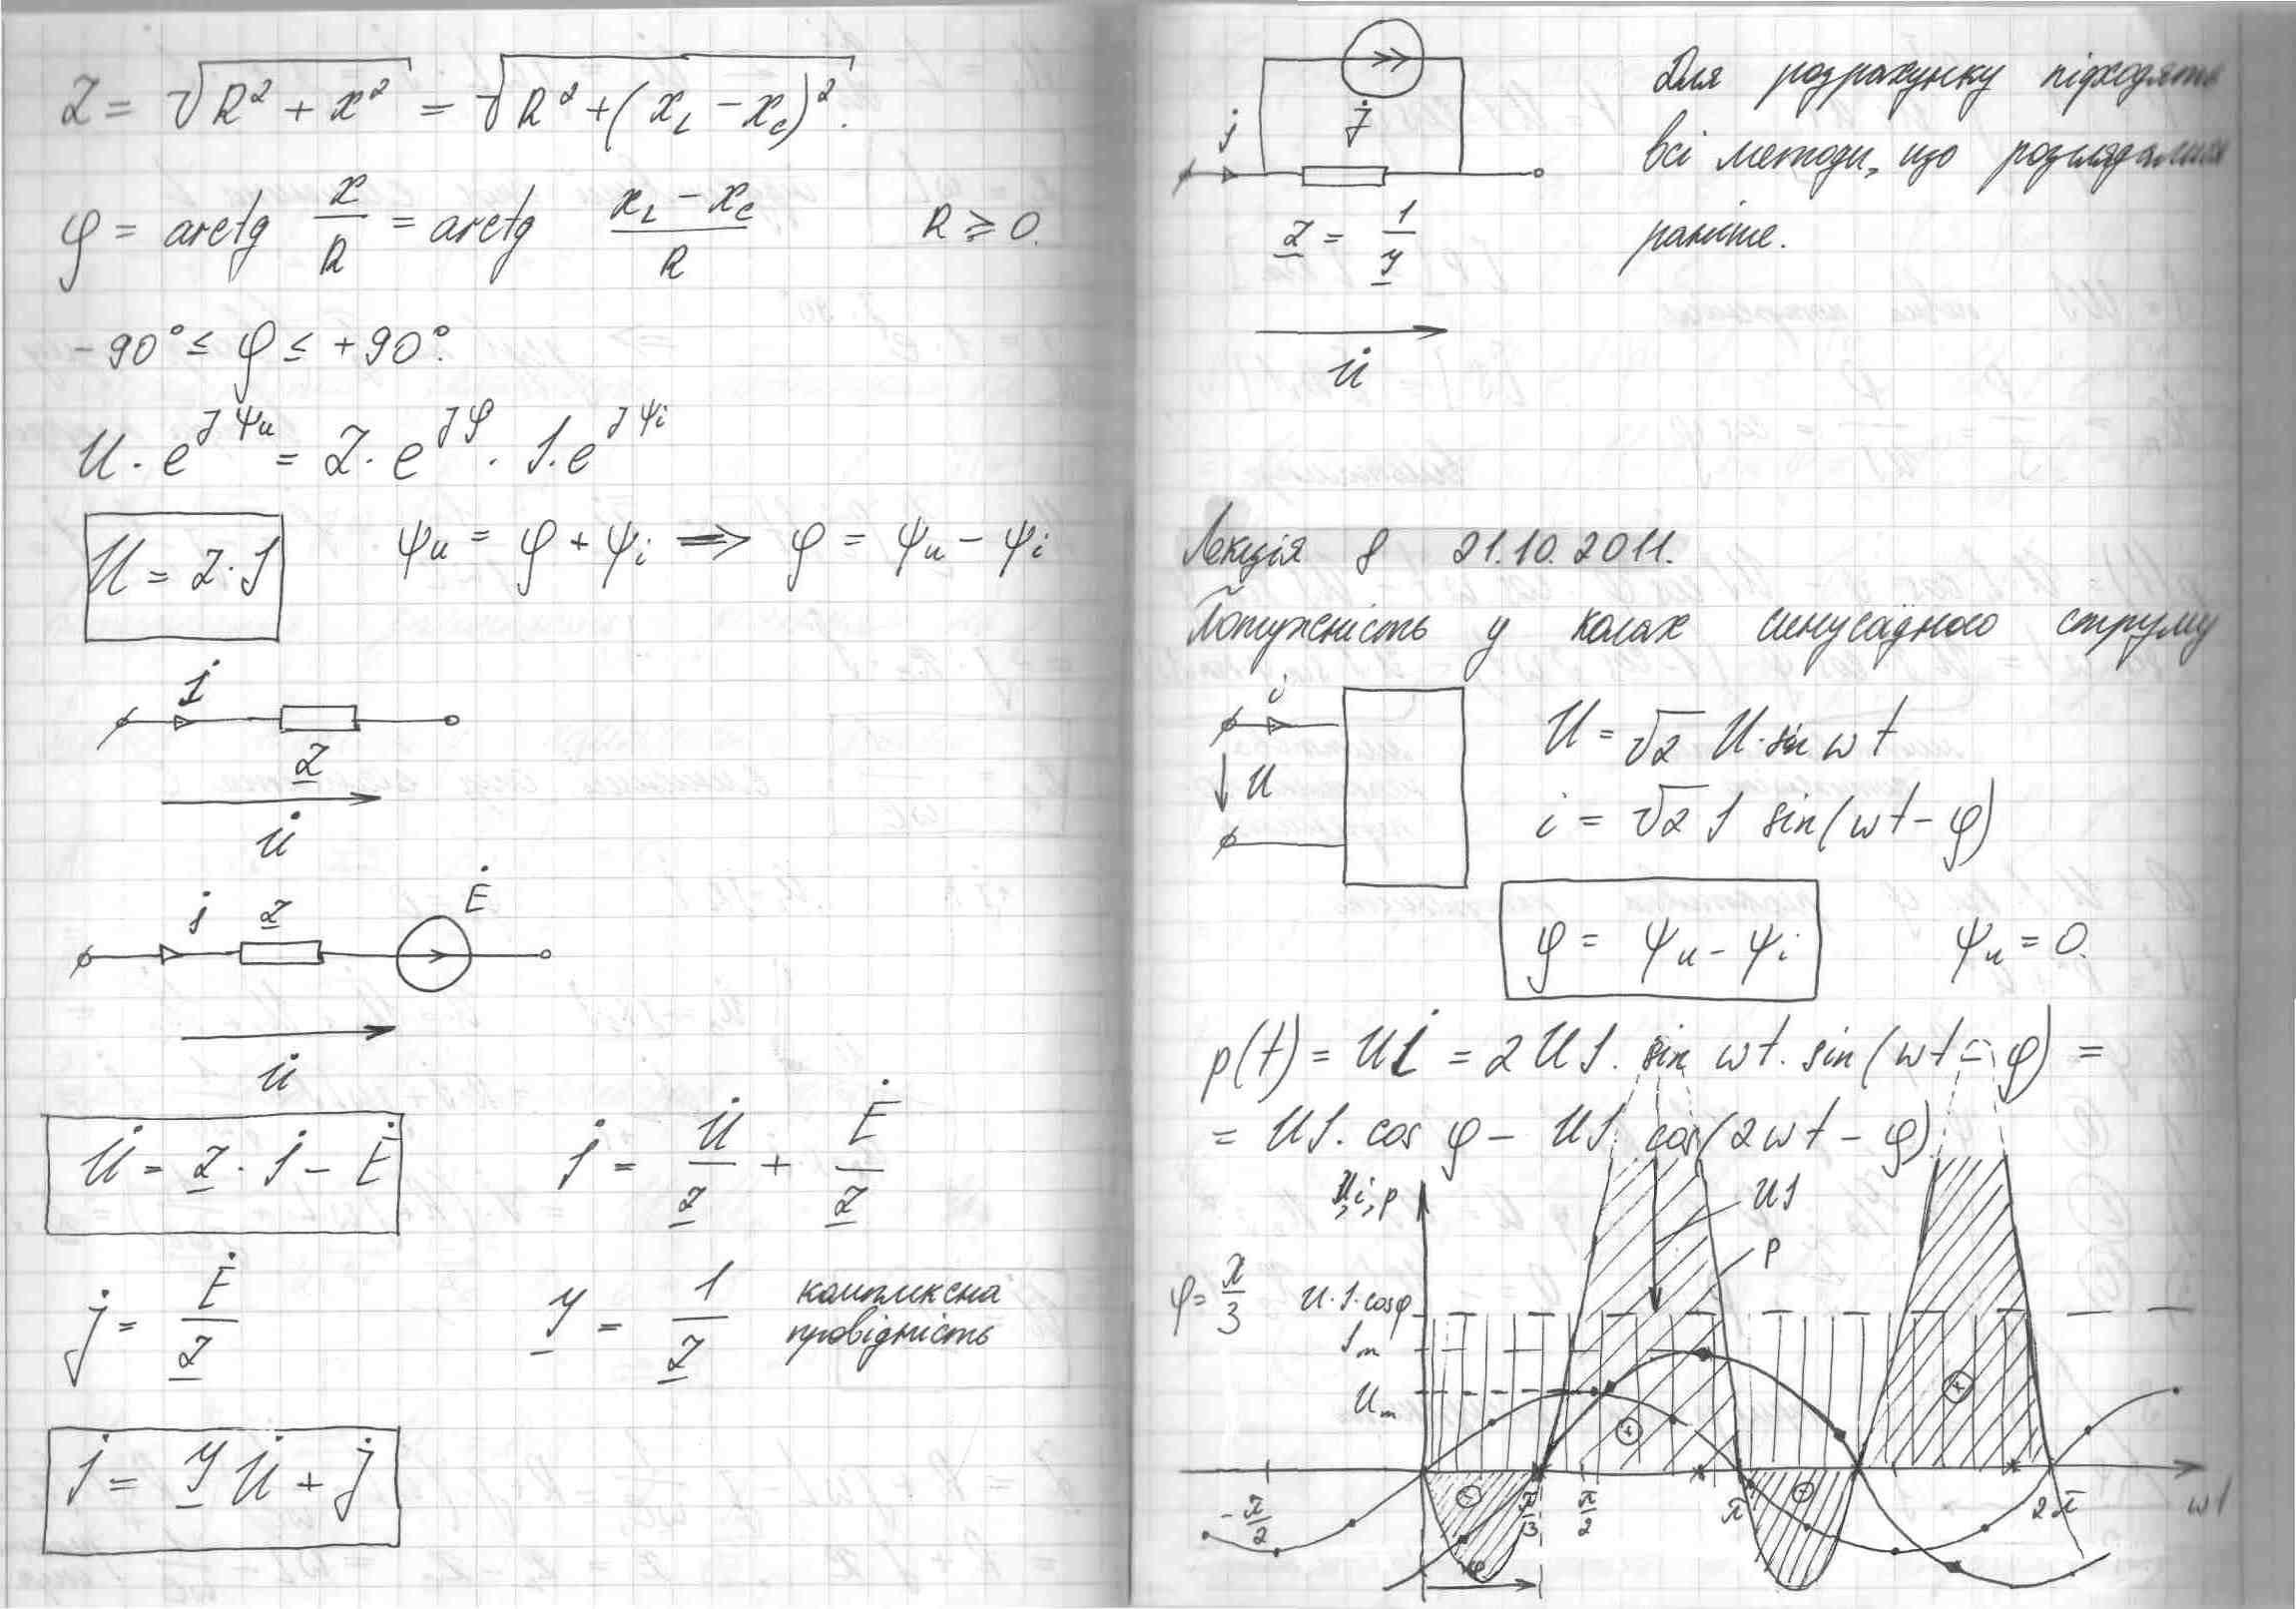 Z = √R² + x² = √R² + (x_L − x_C)².
φ = arctg x/R = arctg (x_L − x_C)/R R ≥ 0.
−90° ≤ φ ≤ +90°.
U · e^jψu = Z · e^jφ · I · e^jψi
U = Z · I ψu = φ + ψi ⇒ φ = ψu − ψi
İ
Z
U̇
İ Z Ė
U̇
U̇ = Z · İ − Ė İ = U̇/Z + Ė/Z
J̇ = Ė/Z Y = 1/Z комплексна
провідність
İ = Y U̇ + J̇
İ J̇
Z = 1/Y
U̇
Для розрахунку підходять
всі методи, що розглядались
раніше.
Лекція 8 21.10.2011.
Потужність у колах синусоїдного струму
i
u
U = √2 U · sin ωt
i = √2 I sin(ωt − φ)
φ = ψu − ψi ψu = 0.
p(t) = ui = 2UI · sin ωt · sin(ωt − φ) =
= UI · cos φ − UI cos(2ωt − φ)
u,i,p
UI
p
φ = π/3
U·I·cosφ
Im
Um
−π/2 π/3 π/2 π 2π ωt
φ